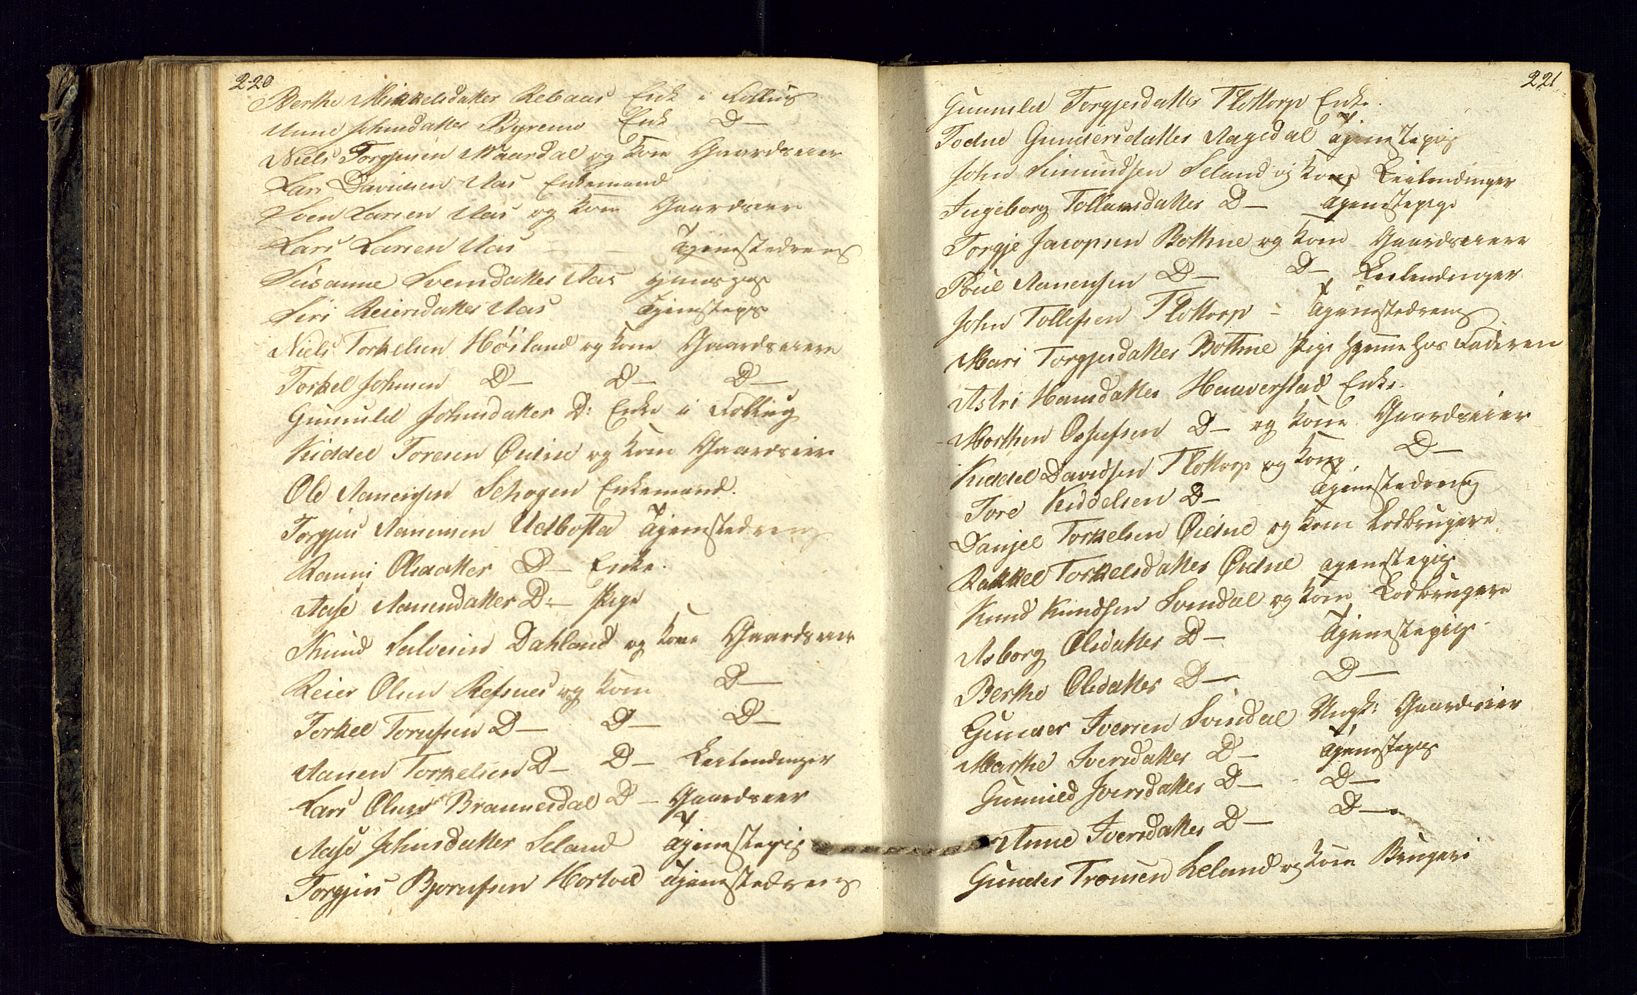 220
Berthe Mikkelsdatter Rebaas Enke i Follug
Anne Johnsdatter Byremo Enk D—
Niels Torgjusen Waardal og Kone Gaardeier
Lars Davidsen Aas Enkemand
Sven Larsen Aas og Kone Gaardeier
Lars Larsen Aas — — Tjenestedreng
Susanne Svensdatter Aas
Siri Reiersdatter Aas Tjenestepige
Niels Torkelsen Høiland og Kone Gaardeiere
Torkel Johnsen D— D— D—
Gunnuld Johnsdatter D: Enke i Follug
Kiddel Toresen Øidne og Kone Gaardeier
Ole Aanensen Schogen Enkemand.
Torgjus Aanensen Udbosta Tjenestedreng
Ranni Olsdatter D— Enke.
Aase Aanensdatter D:— Pige
Knud Salvesen Dahland og Kone Gaardeier
Reier Olsen Refsnes og Kone D—
Torkel Torufsen D— D— D—
Aanen Torkelsen D— D— Leilendinger
Lars Olsen Brannesdal D— Gaardeier
Aase Johnsdatter Seland Tjenestepige
Torgjus Bjorufsen Hortved Tjenestedreng
221
Gunnuld Torgjersdatter Tlottorp Enke.
Todne Gundersdatter Aagedal Tjenestepige
John Simundsen Seland og Kone Leilendinger
Ingeborg Tollansdatter D— Tjenestepige
Torgje Jacopsen Bothne og Kone Gaardeiere
Poul Aanensen D— D— Leilendinger
John Tollefsen Tlottorp — Tjenestedreng
Mari Torgjersdatter Bothne Pige hjemme hos Faderen
Astri Hansdatter Haaverstad Enke.
Morthen Osufsen D— og Kone Gaardeier
Kiddel Davidsen Tlottorp og Kone D—
Tore Kiddelsen D— Tjenestedreng
Danjel Torkelsen Øidne og Kone Lodbrugere
Rakkel Torkelsdatter Øidne Tjenestepige
Knud Knudsen Svindal og Kone Lodbrugere
Asborg Olsdatter D— Tjenestepige
Berthe Olsdatter D— D—
Gunder Iversen Svindal Ungk: Gaardeier
Marthe Iversdatter D— Tjenestepige
Gunnild Iversdatter D— D—
Anne Iversdatter D— D—
Gunder Tronsen Leland og Kone Brugere